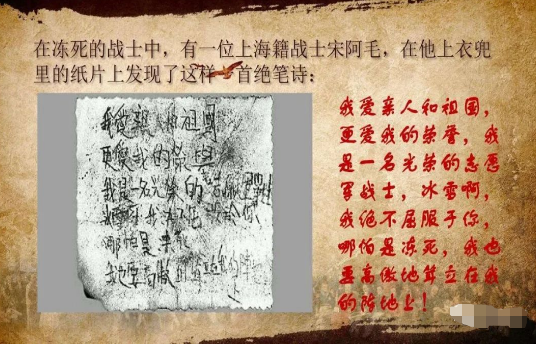 在冻死的战士中，有一位上海籍战士宋阿毛，在他上衣兜
里的纸片上发现了这样一首绝笔诗：
我爱亲人和祖国
更爱我的荣誉
我是一名光荣的志愿军战士
冰雪
哪怕是冻死
我也要高傲
我的阵
上
我爱亲人和祖国，
更爱我的荣誉，我
是一名光荣的志愿
军战士，冰雪啊，
我绝不屈服于你，
哪怕是冻死，我也
要高傲地耸立在我
的阵地上！